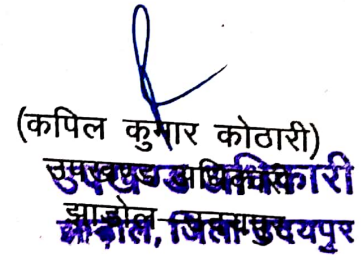 (कपिल कुमार कोठारी)
उपखण्ड अधिकारी
झाडोल, जिला उदयपुर